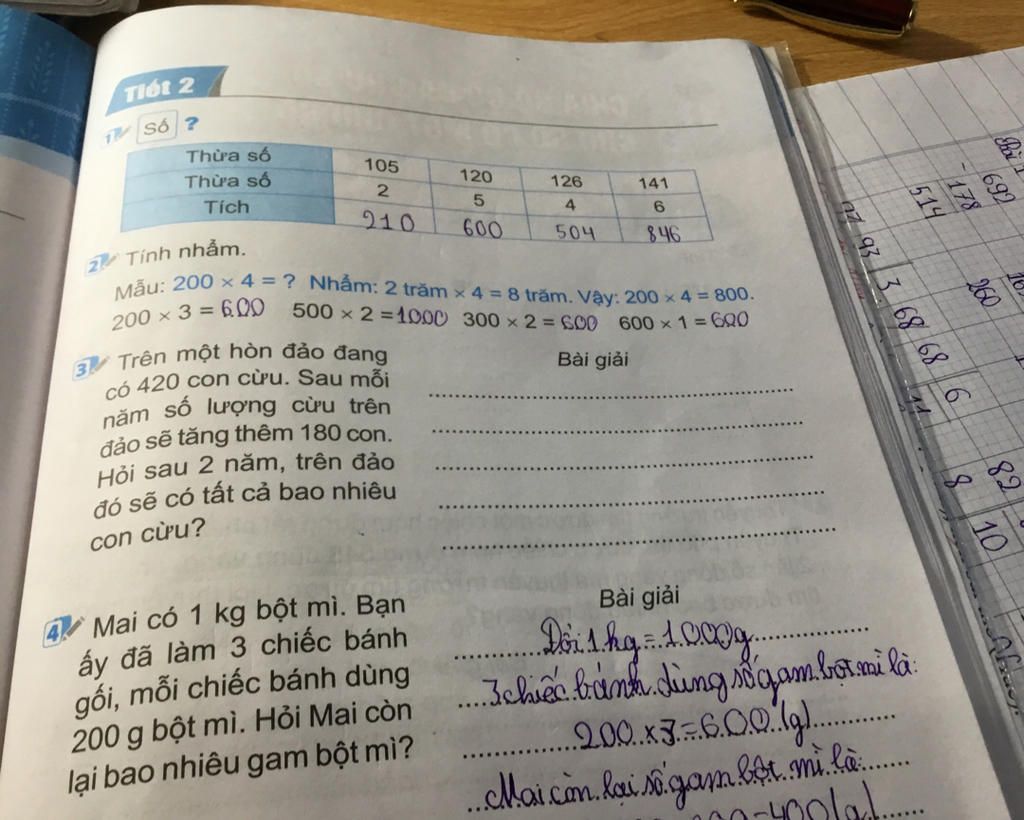 Tiết 2
1 Số ?
Thừa số 105 120 126 141
Thừa số 2 5 4 6
Tích 210 600 504 846
2 Tính nhẩm.
Mẫu: 200 × 4 = ? Nhẩm: 2 trăm × 4 = 8 trăm. Vậy: 200 × 4 = 800.
200 × 3 = 600 500 × 2 = 1000 300 × 2 = 600 600 × 1 = 600
3 Trên một hòn đảo đang
có 420 con cừu. Sau mỗi
năm số lượng cừu trên
đảo sẽ tăng thêm 180 con.
Hỏi sau 2 năm, trên đảo
đó sẽ có tất cả bao nhiêu
con cừu?
Bài giải
4 Mai có 1 kg bột mì. Bạn
ấy đã làm 3 chiếc bánh
gối, mỗi chiếc bánh dùng
200 g bột mì. Hỏi Mai còn
lại bao nhiêu gam bột mì?
Bài giải
Đổi 1 kg = 1000g
3 chiếc bánh dùng số gam bột mì là:
200 × 3 = 600 (g)
Mai còn lại số gam bột mì là:
=400(g)
692
- 178
514
93 3 68
68 6
260
82
8 10